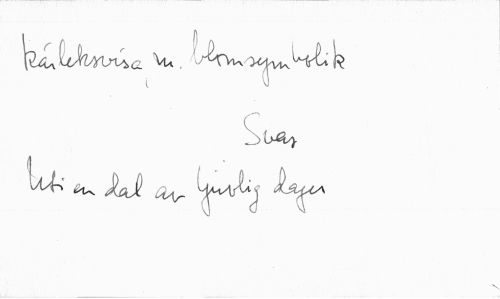 kärleksvisa, m. blomsymbolik
Svar
Uti en dal av ljuvlig dager